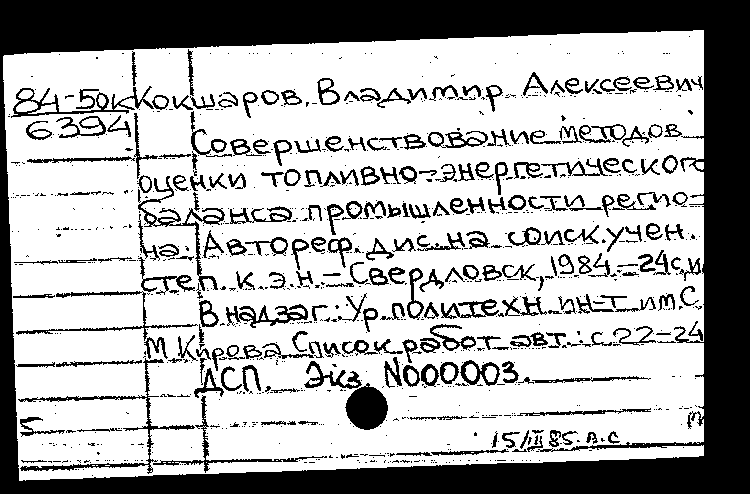 84-50к Кокшаров, Владимир Алексеевич
6394
Совершенствование методов
оценки топливно-энергетического
баланса промышленности регио-
на: Автореф. дис. на соиск. учен.
степ. к. э. н. - Свердловск, 1984. - 24 с, и
В надзаг.: Ур. политехн. ин-т им. С.
М. Кирова Список работ авт.: с. 22-24
ДСП. Экз. N000003.
5
15/III 85. А.С.